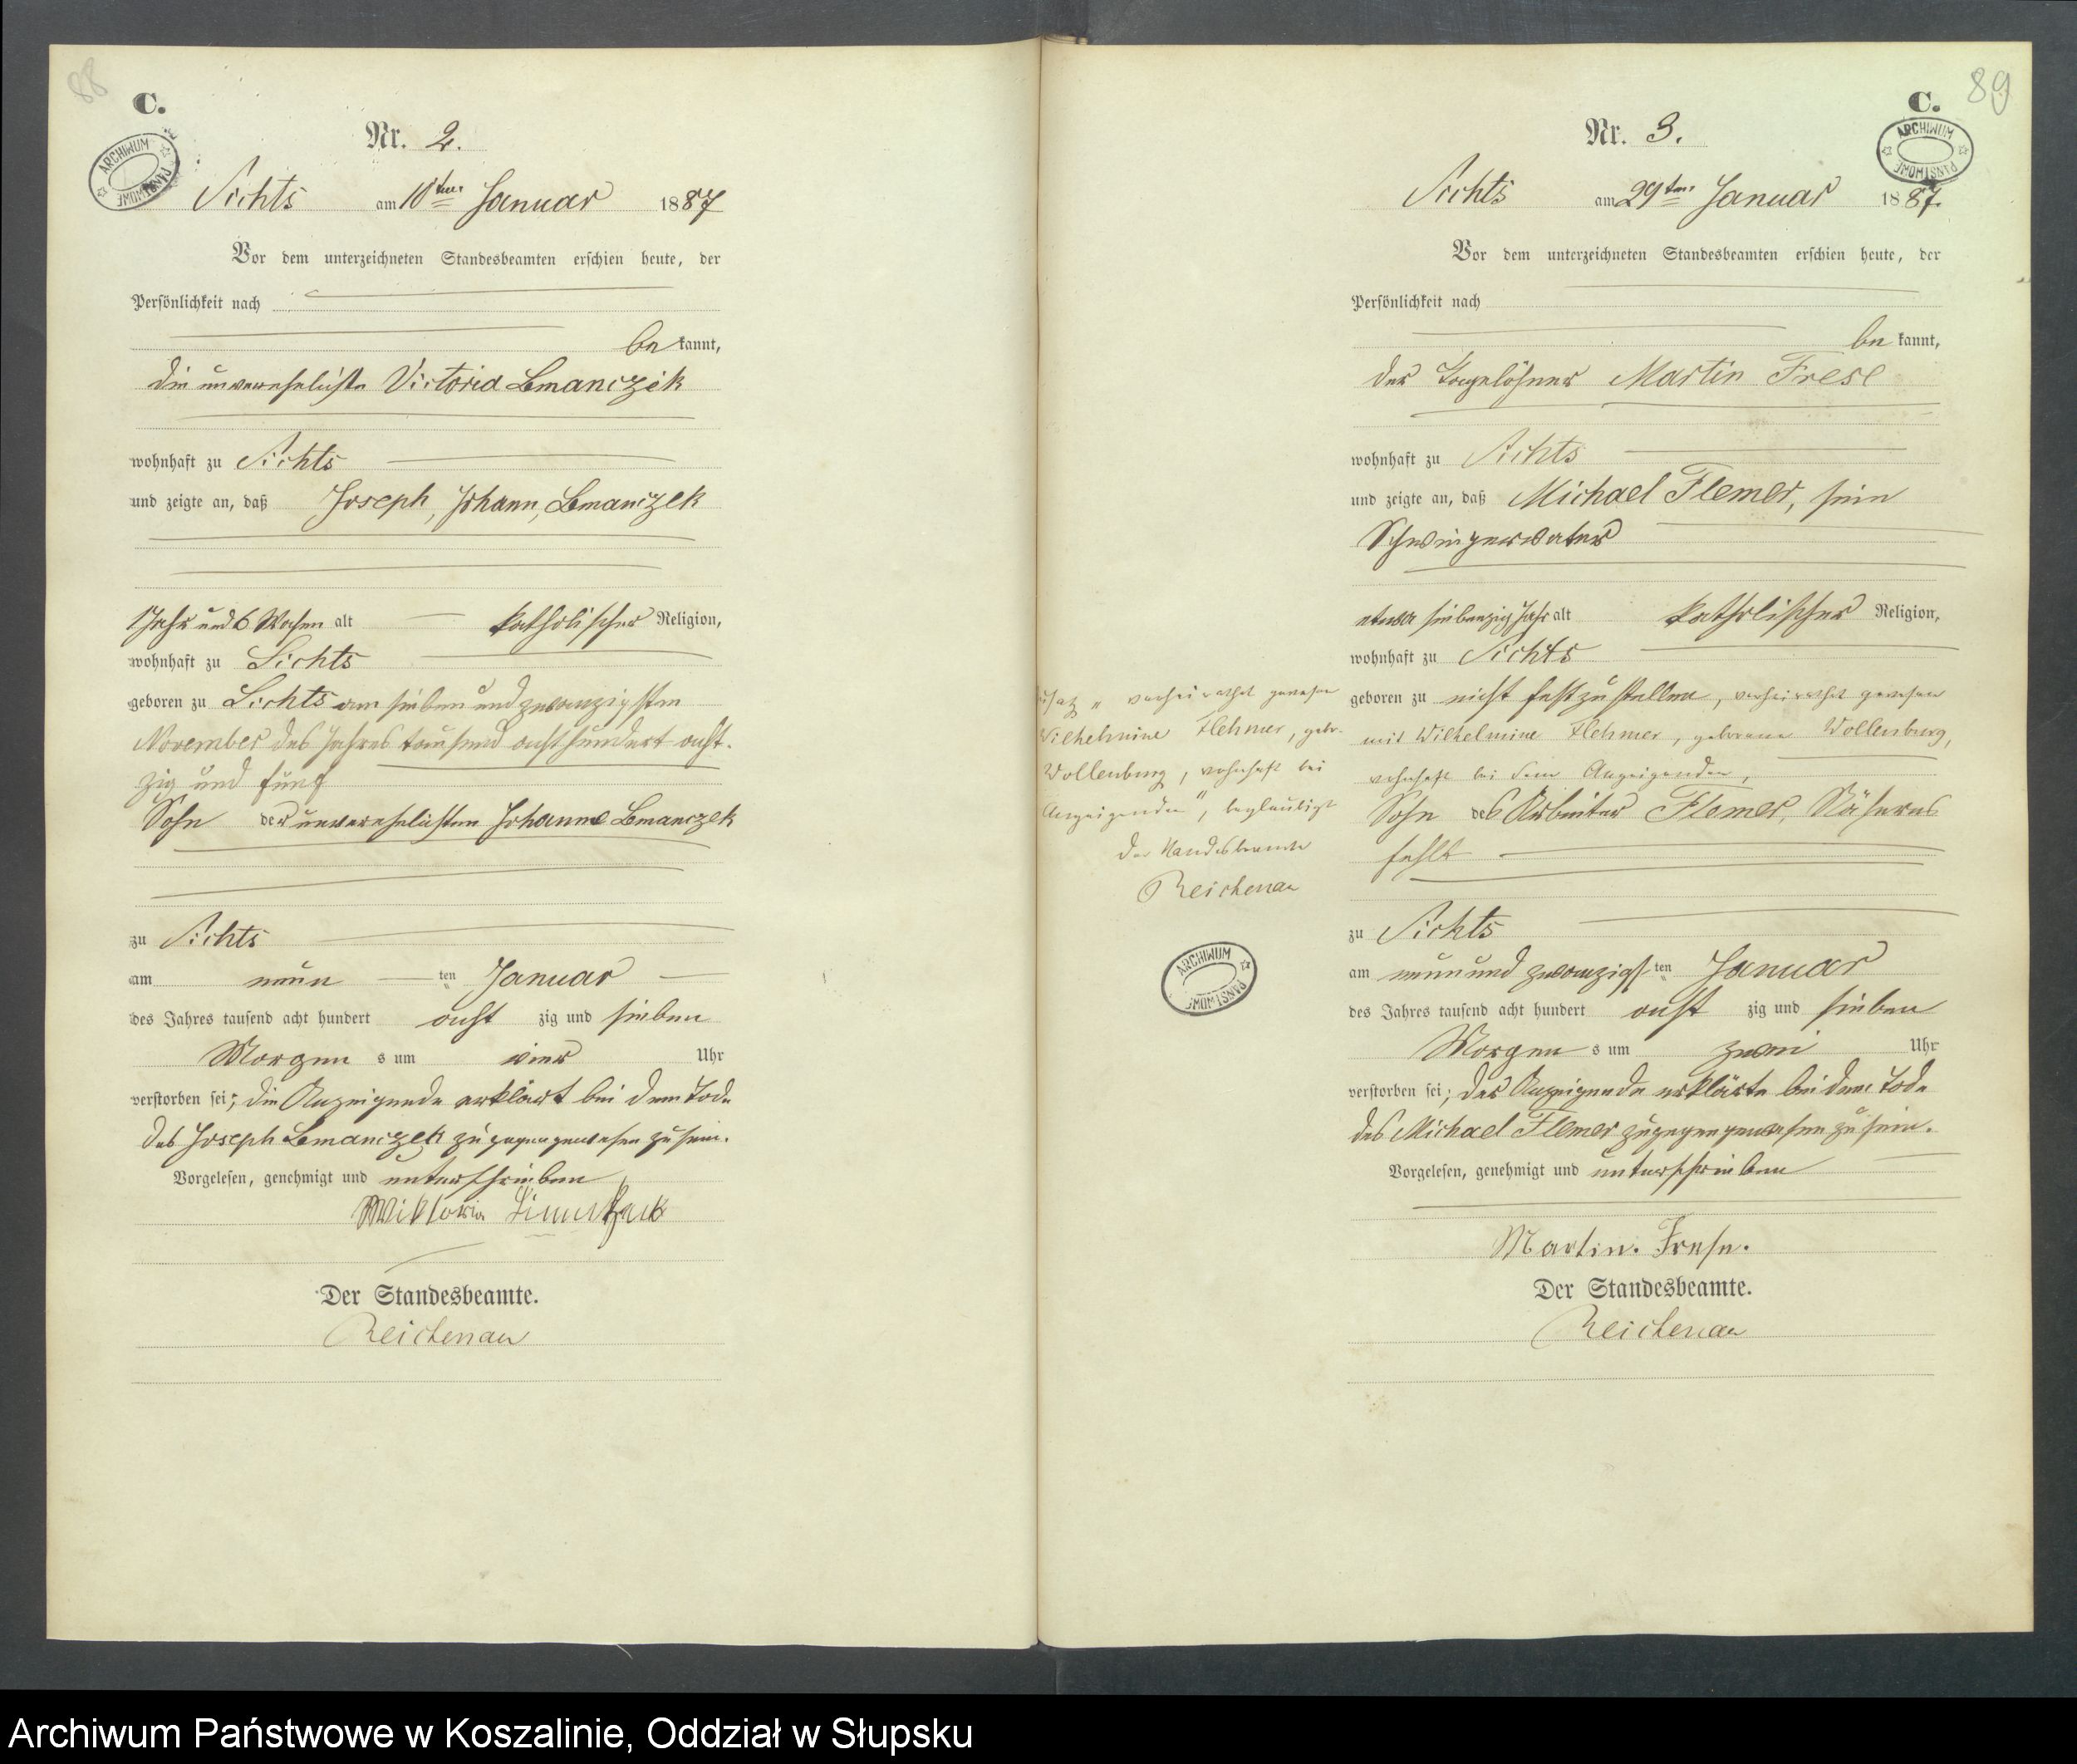 88
C.
ARCHIWUM PAŃSTWOWE
Nr. 2.
Sichts am 10ten Januar 1887
Vor dem unterzeichneten Standesbeamten erschien heute, der
Persönlichkeit nach
be kannt,
die unverehelichte Victoria
wohnhaft zu Sichts
und zeigte an, daß Joseph, Johann, Lmanczek
1 Jahr und 6 Wochen alt katholischer Religion,
wohnhaft zu Lichts
geboren zu Lichts am sieben und zwanzigsten
November des Jahres tausend achthundert acht-
zig und fünf
Sohn der unverehelichten Johanne Lmanczek
zu Sichts
am neun ten Januar
des Jahres tausend acht hundert acht zig und sieben
Morgen s um vier Uhr
verstorben sei; die Anzeigende erklärt bei dem Tode
des Joseph Lmanczek zugegen gewesen zu sein.
Vorgelesen, genehmigt und unterschrieben
Wiktoria
Der Standesbeamte.
Reichenau
89
C.
ARCHIWUM PAŃSTWOWE
Nr. 3.
Sichts am 29ten Januar 1887.
Vor dem unterzeichneten Standesbeamten erschien heute, der
Persönlichkeit nach
be kannt,
der Tagelöhner Martin Frese
wohnhaft zu Sichts
und zeigte an, daß Michael Flemer, sein
Schwiegervater
etwa siebenzig Jahr alt katholischer Religion,
wohnhaft zu Sichts
geboren zu nicht festzustellen, verheirathet gewesen
mit Wilhelmine Flehmer, geborene Wollenburg,
wohnhaft bei dem Anzeigenden,
Sohn des Arbeiter Flemer, Näheres
fehlt
zu Sichts
am neun und zwanzigs ten Januar
des Jahres tausend acht hundert acht zig und sieben
Morgen s um zwei Uhr
verstorben sei; der Anzeigende erklärte bei dem Tode
des Michael Flemer zugegen gewesen zu sein.
Vorgelesen, genehmigt und unterschrieben
Martin. Frese.
Der Standesbeamte.
Reichenau
"verheirathet gewesen
Wilhelmine Flehmer, gebr.
Wollenburg, wohnhaft bei
Anzeigenden", beglaubigt
Der Standesbeamte
Reichenau
ARCHIWUM PAŃSTWOWE
Archiwum Państwowe w Koszalinie, Oddział w Słupsku